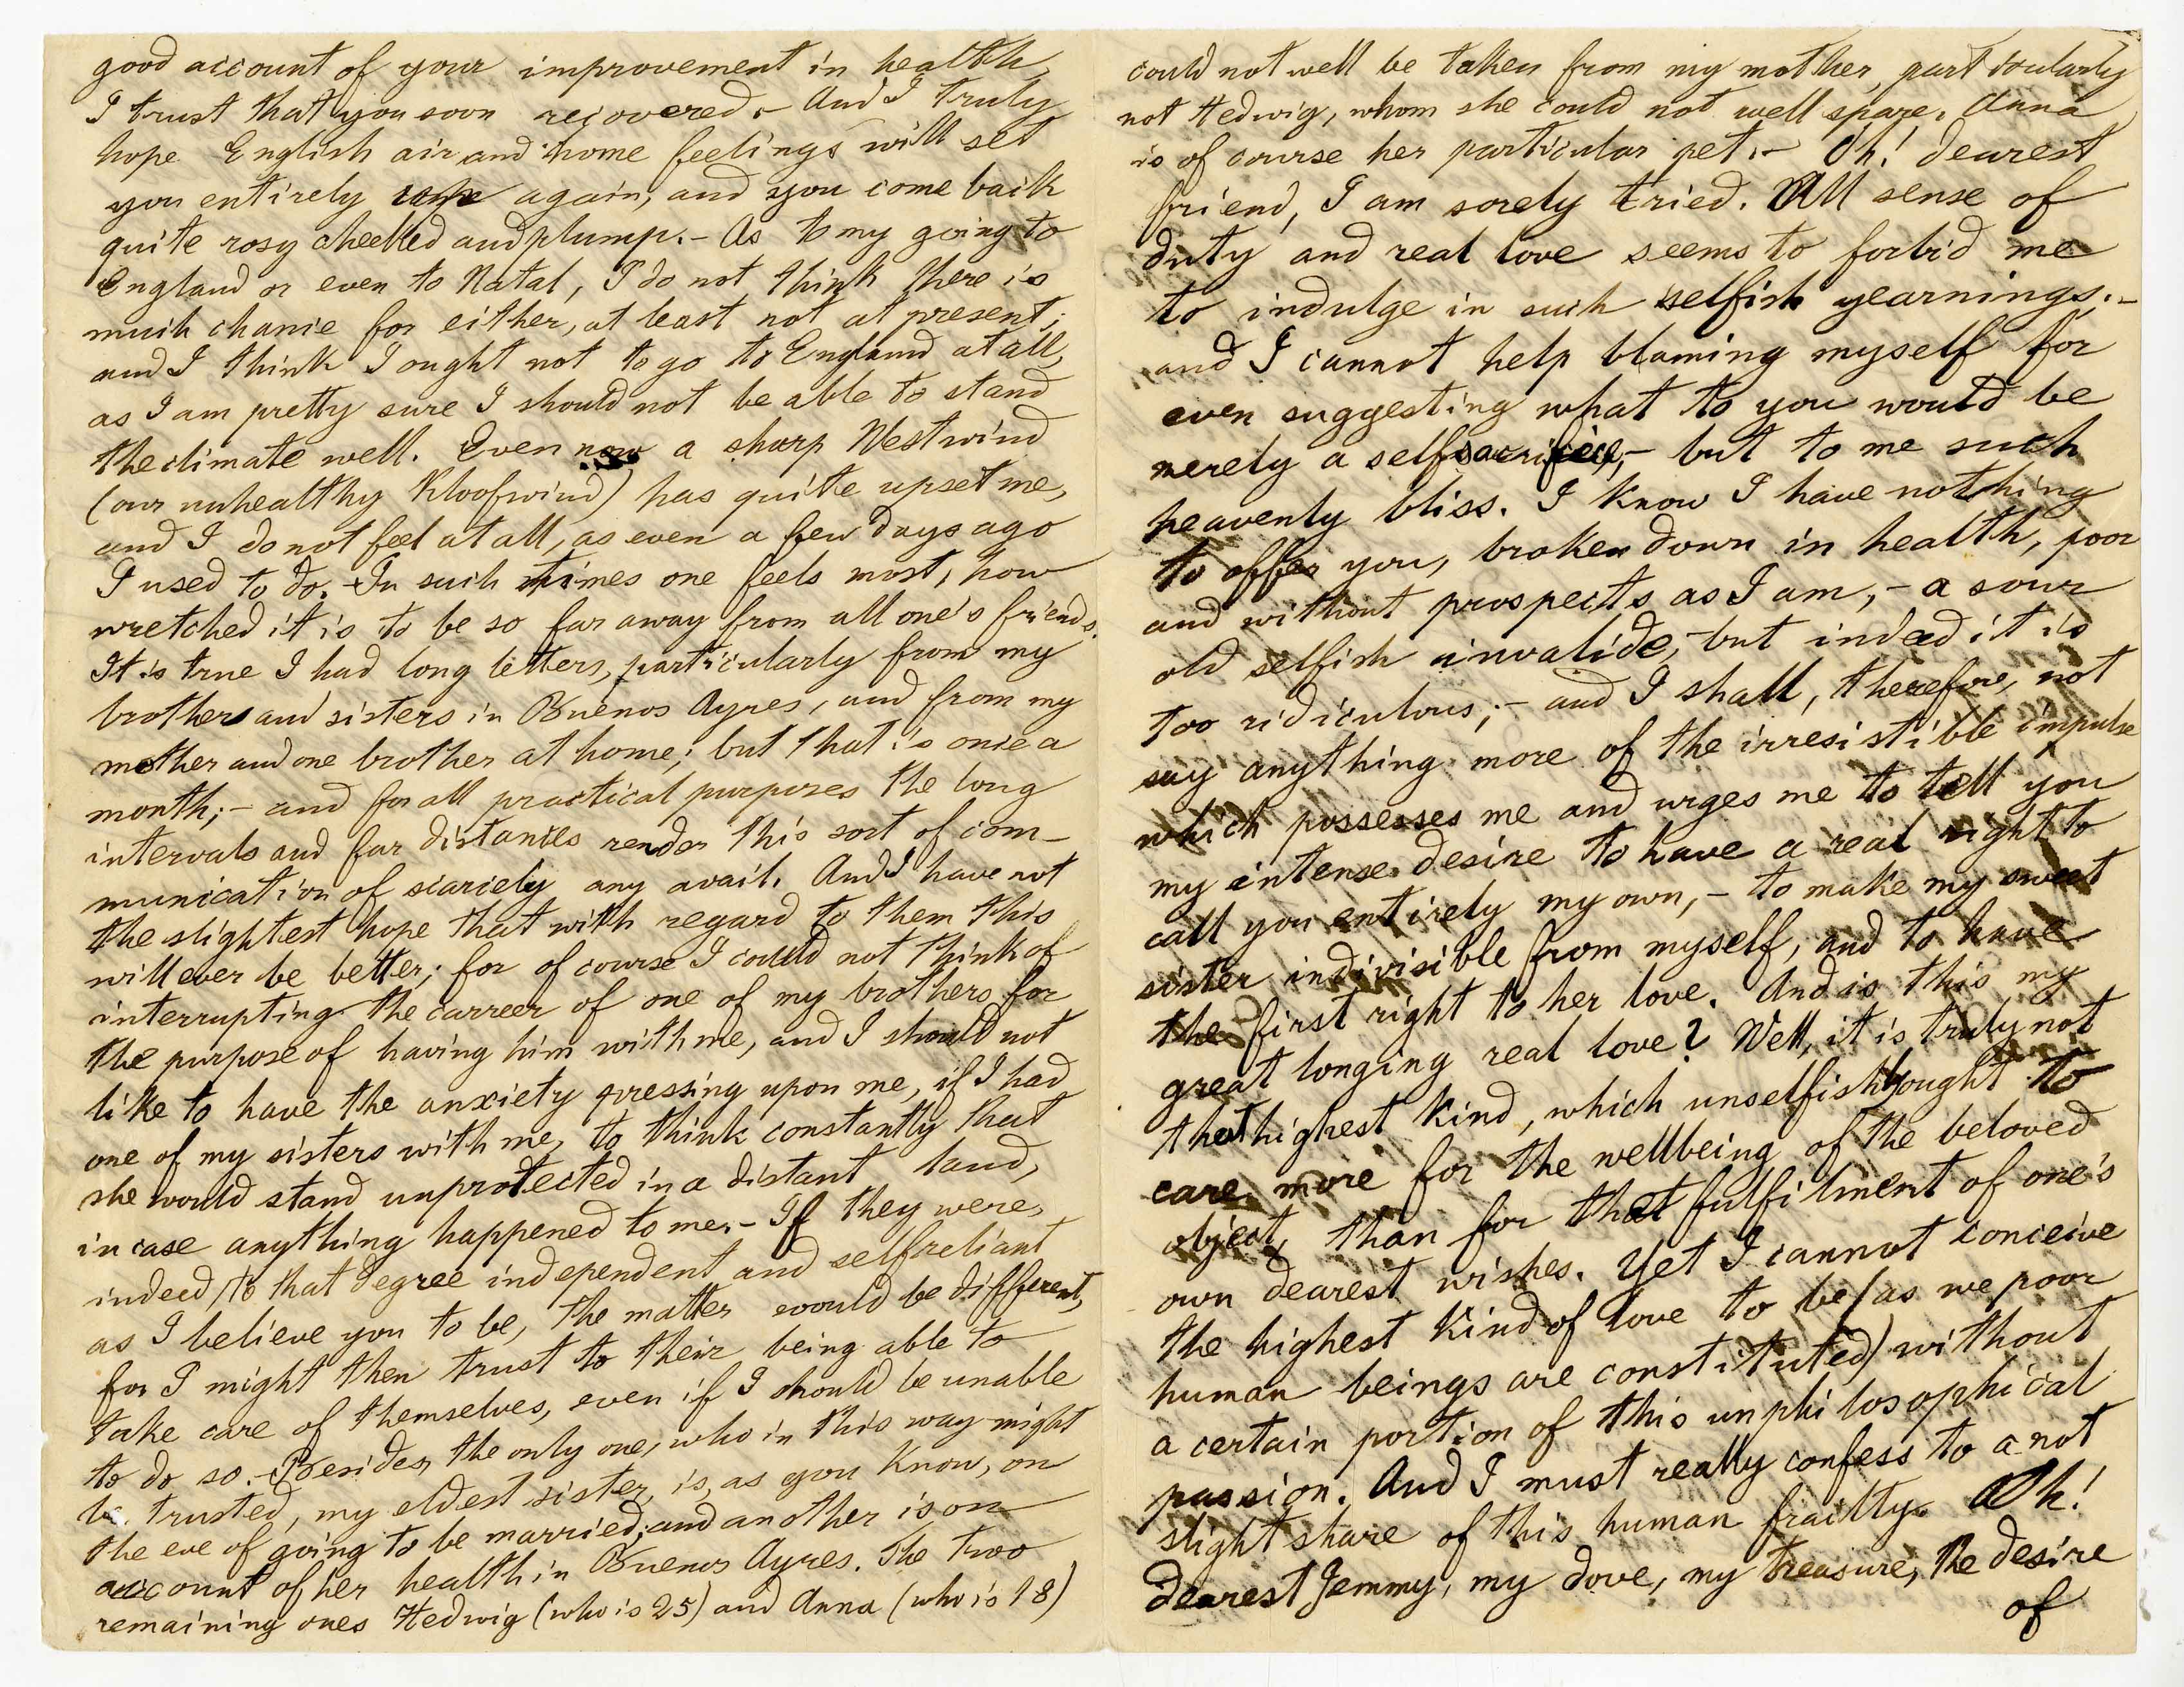 good account of your improvement in health,
I trust that you soon recovered. - And I truly
hope English air and home feelings will set
you entirely up again, and you come back
quite rosy cheeked and plump. - As to my going to
England or even to Natal, I do not think there is
much chance for either, at least not at present;
and I think I ought not to go to England at all,
as I am pretty sure I should not be able to stand
the climate well. Even now a sharp Westwind
(our unhealthy Kloofwind) has quite upset me,
and I do not feel at all, as even a few days ago
I used to do. - In such times one feels most, how
wretched it is to be so far away from all one's friends.
It is true I had long letters, particularly from my
brothers and sisters in Buenos Ayres, and from my
mother and one brother at home; but that is once a
month; - and for all practical purposes the long
intervals and far distances render this sort of com-
munication of scarcely any avail. And I have not
the slightest hope that with regard to them this
will ever be better; for of course I could not think of
interrupting the carreer of one of my brothers for
the purpose of having him with me, and I should not
like to have the anxiety pressing upon me, if I had
one of my sisters with me, to think constantly that
she would stand unprotected in a distant land,
in case anything happened to me. - If they were,
indeed, to that degree independent and selfreliant
as I believe you to be, the matter would be different,
for I might then trust to their being able to
take care of themselves, even if I should be unable
to do so. - Besides, the only one, who in this way might
be trusted, my eldest sister, is, as you know, on
the eve of going to be married; and another is on
account of her health in Buenos Ayres. The two
remaining ones Hedwig (who is 25) and Anna (who is 18)
could not well be taken from my mother, particularly
not Hedwig, whom she could not well spare. Anna
is of course her particular pet. - Oh! dearest
friend, I am sorely tried. All sense of
duty and real love seems to forbid me
to indulge in such selfish yearnings. -
and I cannot help blaming myself for
even suggesting what to you would be
merely a selfsacrifice, - but to me such
heavenly bliss. I know I have nothing
to offer you, broken down in health, poor
and without prospects as I am, - a sour
old selfish invalide, - but indeed it is
too ridiculous; - and I shall, therefore, not
say anything more of the irresistible impulse
which possesses me and urges me to tell you
my intense desire to have a real right to
call you entirely my own, - to make my sweet
sister indivisible from myself, and to have
the first right to her love. And is this my
great longing real love? Well, it is truly not
that highest kind, which unselfishly ought to
care more for the wellbeing of the beloved
object, than for that fulfilment of one's
own dearest wishes. Yet I cannot conceive
the highest kind of love to be (as we poor
human beings are constituted) without
a certain portion of this unphilosophical
passion. And I must really confess to a not
slight share of this human frailty. Oh!
dearest Jemmy, my dove, my treasure, the desire
of